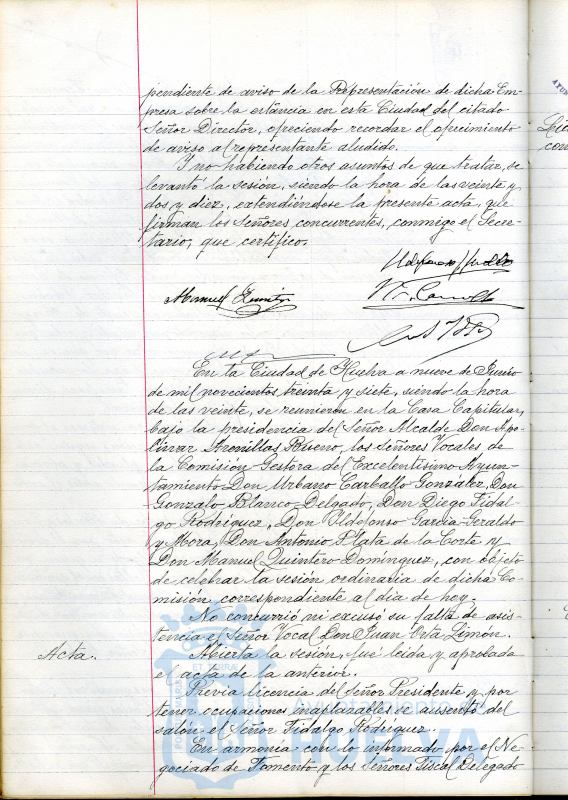 pendiente de aviso de la Representación de dicha Em-
presa sobre la estancia en esta Ciudad del citado
Señor Director, ofreciendo recordar el ofrecimiento
de aviso al representante aludido.
Y no habiendo otros asuntos de que tratar, se
levantó la sesión, siendo la hora de las veinte y
dos y diez, extendiéndose la presente acta, que
firman los Señores concurrentes, conmigo el Secre-
tario, que certifico.
Manuel
En la Ciudad de Huelva a nueve de Junio
de mil novecientos treinta y siete, siendo la hora
de las veinte, se reunieron en la Casa Capitular,
bajo la presidencia del Señor Alcalde Don Apo-
linar Arenillas Bueno, los Señores Vocales de
la Comisión Gestora del Excelentísimo Ayun-
tamiento Don Urbano Carballo González, Don
Gonzalo Blanco-Delgado, Don Diego Fidal-
go Rodríguez, Don Ildefonso García-Geraldo
y Mora, Don Antonio Mata de la Corte y
Don Manuel Quintero Domínguez, con objeto
de celebrar la sesión ordinaria de dicha Co-
misión correspondiente al día de hoy.
No concurrió ni excusó su falta de asis-
tencia el Señor Vocal Don Juan Orta Limón.
Acta.
Abierta la sesión, fué leída y aprobada
el acta de la anterior.
Previa licencia del Señor Presidente y por
tener ocupaciones inaplazables se ausentó del
salón el Señor Fidalgo Rodríguez.
En armonía con lo informado por el Ne-
gociado de Fomento y los Señores Fiscal Delegado